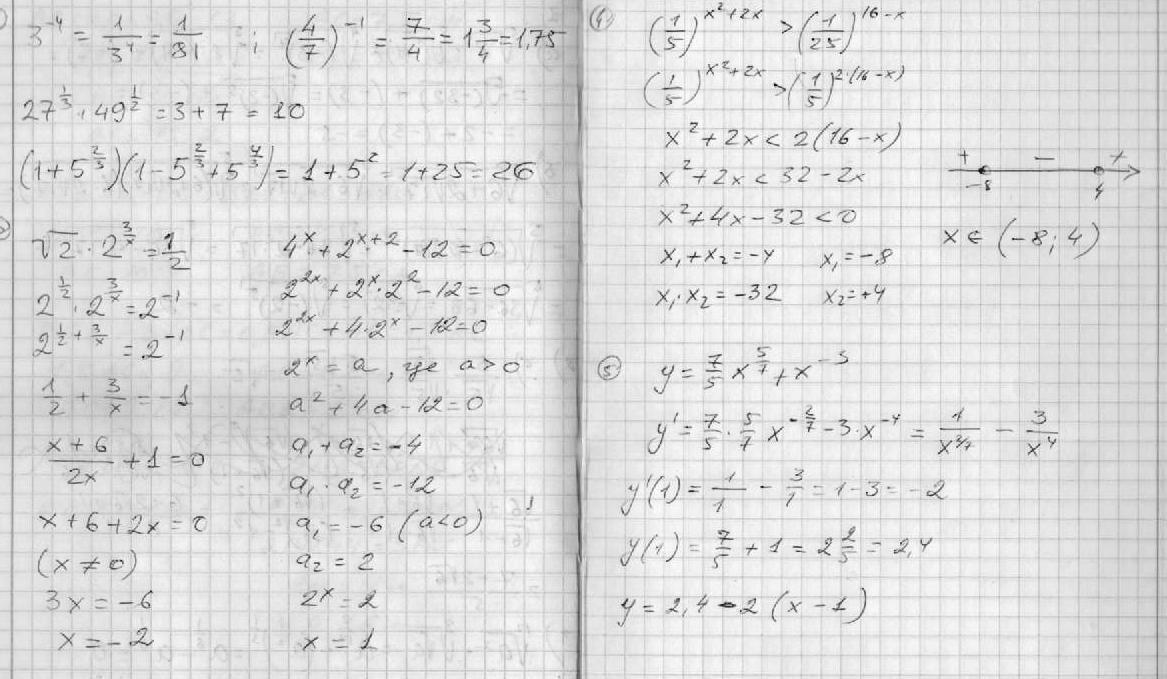 3⁻⁴ = 1/3⁴ = 1/81 ; (4/7)⁻¹ = 7/4 = 1 3/4 = 1,75
27^(1/3) · 49^(1/2) = 3 + 7 = 10
(1+5^(2/3))(1-5^(2/3)+5^(4/3)) = 1+5² = 1+25 = 26
√2 · 2^(3/x) = 1/2
2^(1/2) · 2^(3/x) = 2⁻¹
2^(1/2 + 3/x) = 2⁻¹
1/2 + 3/x = -1
(x+6)/(2x) + 1 = 0
x+6+2x = 0
(x ≠ 0)
3x = -6
x = -2
4^x + 2^(x+2) - 12 = 0
2^(2x) + 2^x · 2² - 12 = 0
2^(2x) + 4·2^x - 12 = 0
2^x = a, где a > 0
a² + 4a - 12 = 0
a₁ + a₂ = -4
a₁ · a₂ = -12
a₁ = -6 (a<0)
a₂ = 2
2^x = 2
x = 1
④ (1/5)^(x²+2x) > (1/25)^(16-x)
(1/5)^(x²+2x) > (1/5)^(2·(16-x))
x² + 2x < 2(16-x)
x² + 2x < 32 - 2x
x² + 4x - 32 < 0
x₁ + x₂ = -4 x₁ = -8
x₁ · x₂ = -32 x₂ = +4
+ − +
-8 4
x ∈ (-8; 4)
⑤ y = 7/5 x^(5/7) + x⁻³
y' = 7/5 · 5/7 x^(-2/7) - 3·x⁻⁴ = 1/x^(2/7) - 3/x⁴
y'(1) = 1/1 - 3/1 = 1-3 = -2
y(1) = 7/5 + 1 = 2 2/5 = 2,4
y = 2,4 - 2 (x-1)